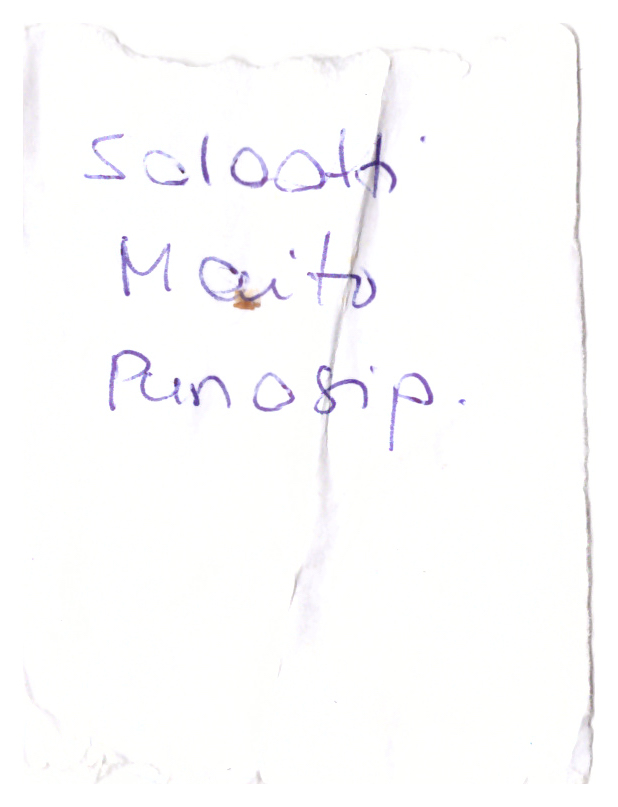 Salaatti
Maito
Punasip.